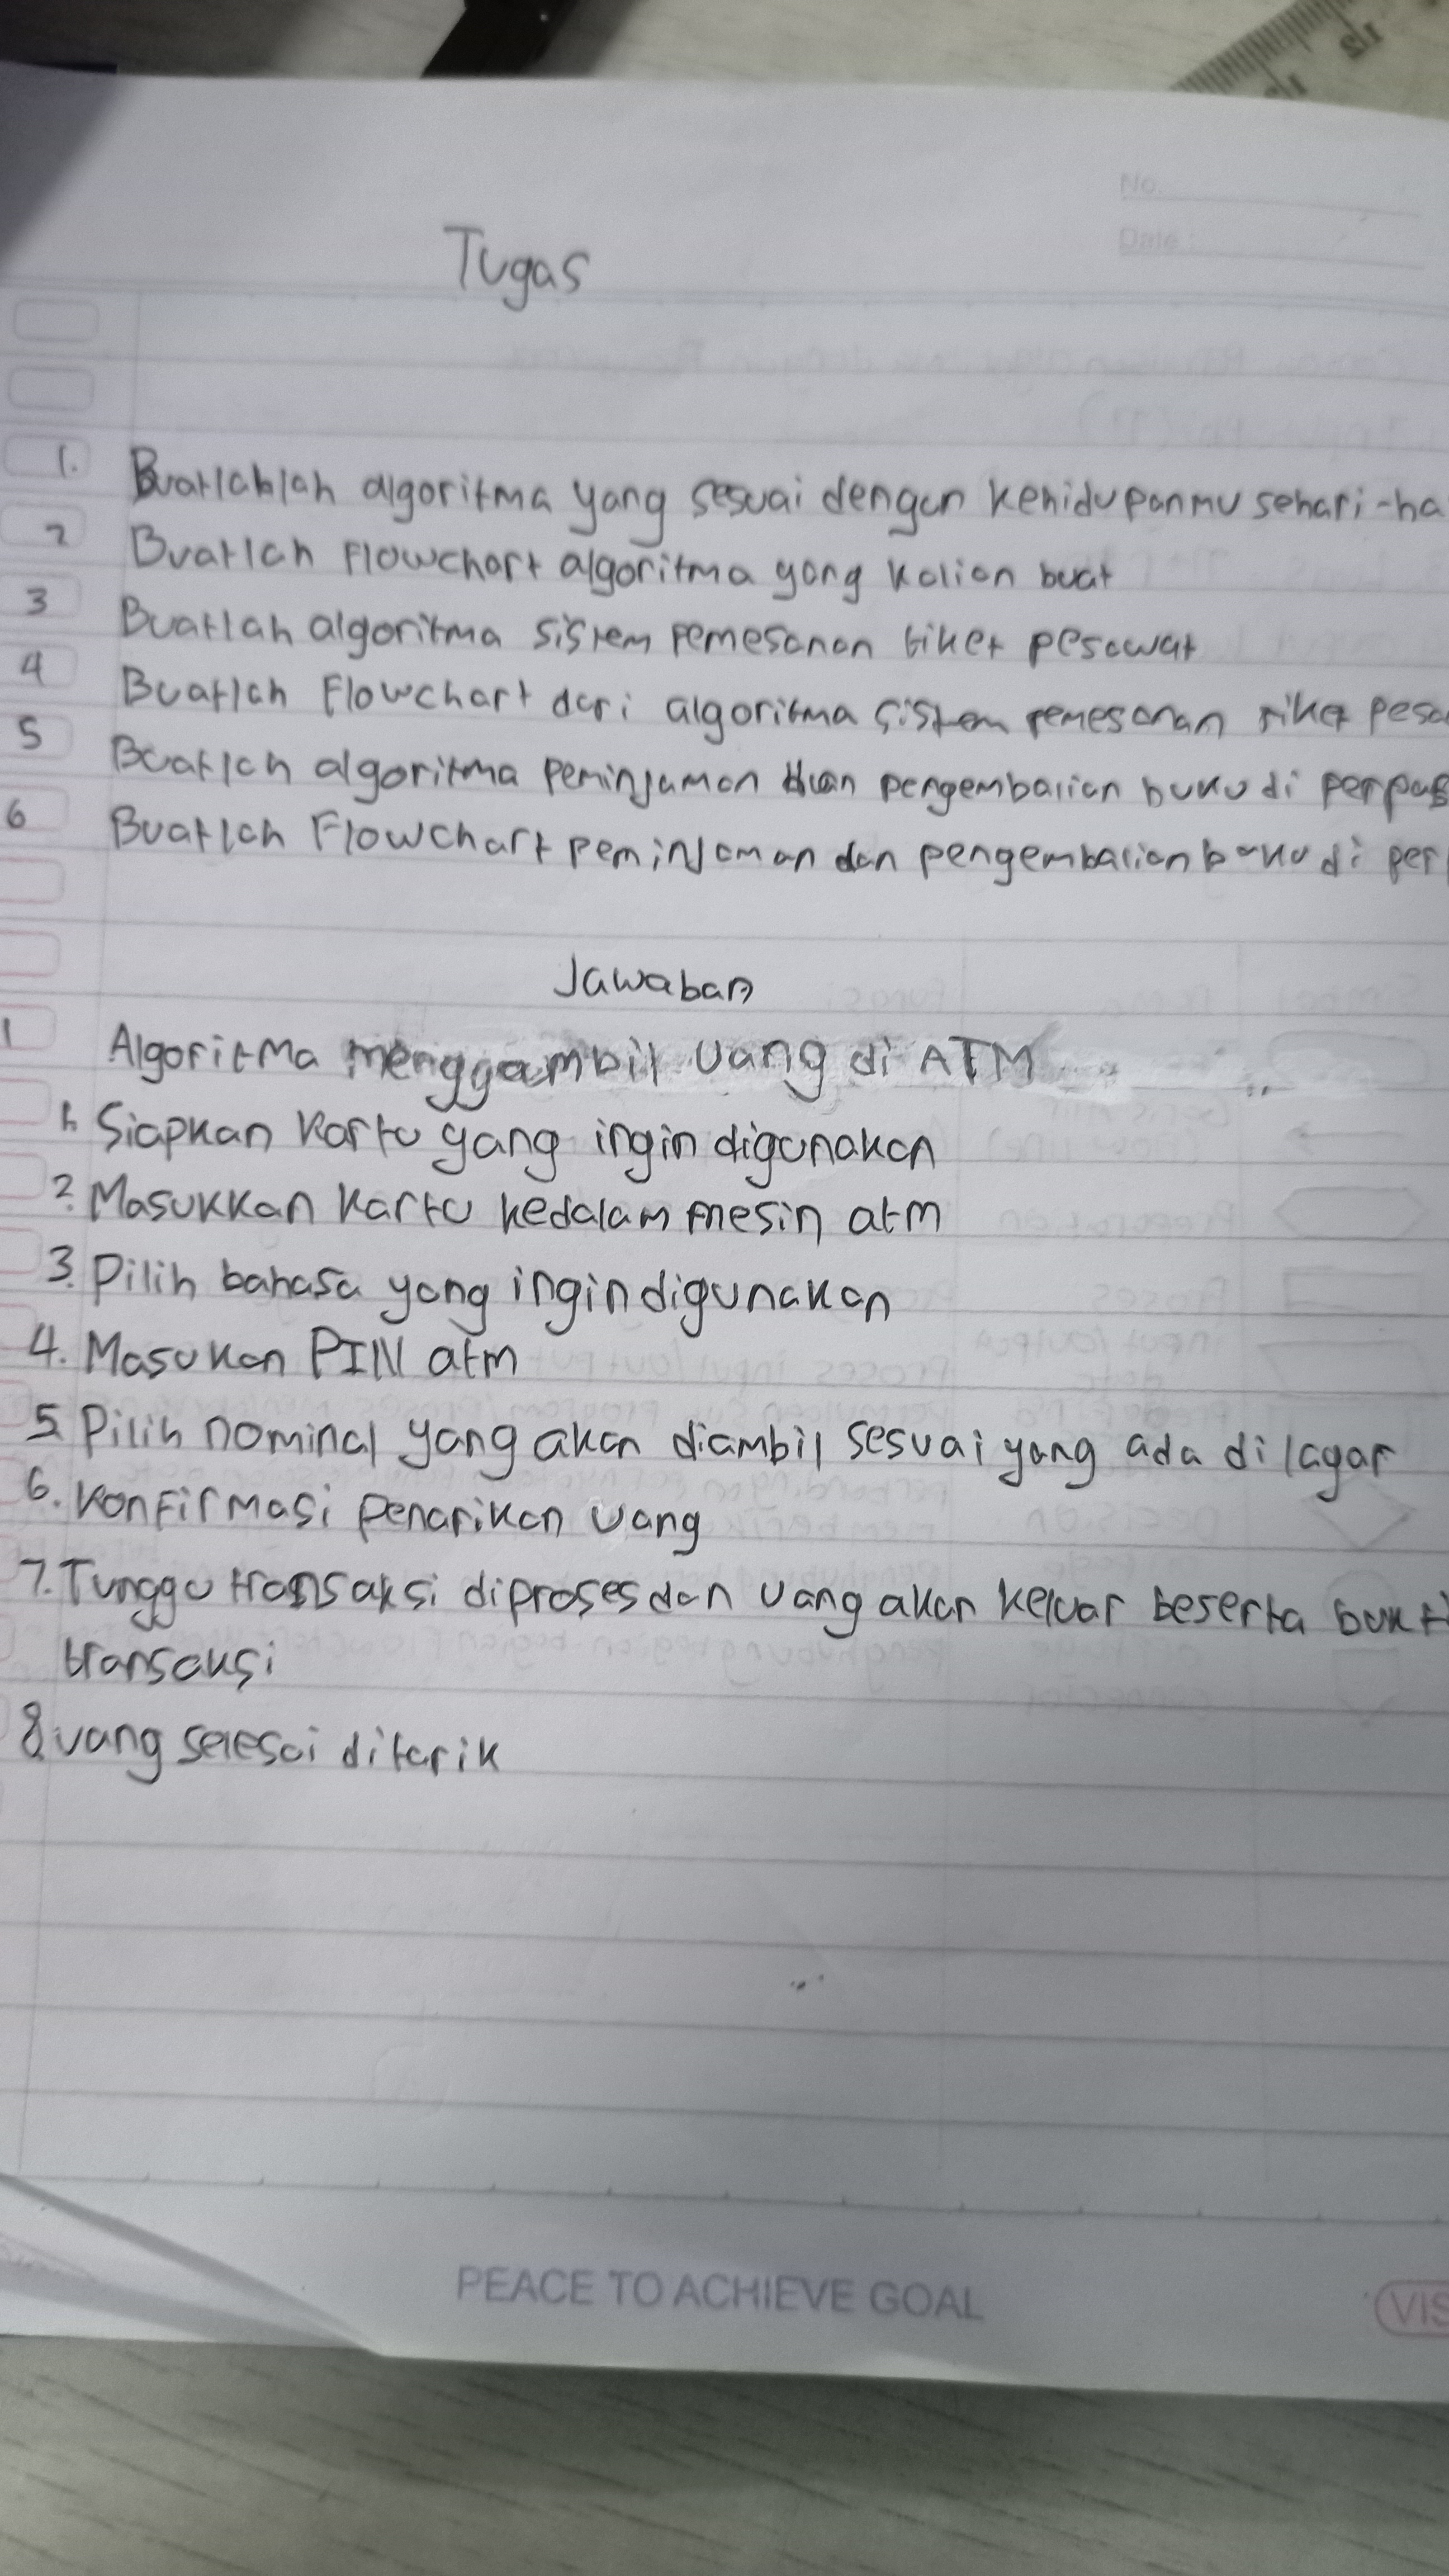 No.
Date :
Tugas
1. Buatlablah algoritma yang sesuai dengan kehidupanmu sehari-ha
2 Buatlah flowchart algoritma yang kalian buat
3 Buatlah algoritma sistem pemesanan tiket pesawat
4 Buatlah Flowchart dari algoritma sistem pemesanan tiket pesa
5 Buatlah algoritma peminjaman dan pengembalian buku di perpus
6 Buatlah Flowchart peminjaman dan pengembalian buku di per
Jawaban
1 Algoritma menggambil uang di ATM
1. Siapkan kartu yang ingin digunakan
2. Masukkan kartu kedalam mesin atm
3. Pilih bahasa yang ingin digunakan
4. Masukan PIN atm
5. Pilih nominal yang akan diambil sesuai yang ada di lagar
6. konfirmasi penarikan uang
7. Tunggu transaksi diproses dan uang akan keluar beserta bukti
transaksi
8. uang selesai ditarik
PEACE TO ACHIEVE GOAL
VIS